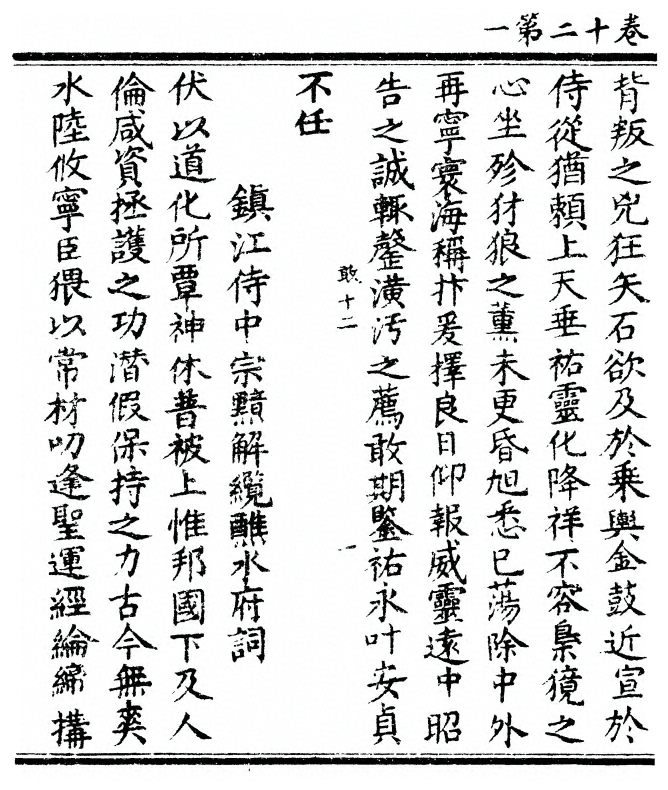 卷十二第一
背叛之兇狂矢石欲及於乘輿金鼓近宣於
侍從猶賴上天垂祐靈化降祥不容梟獍之
心坐殄犲狼之薰未更昏旭悉已蕩除中外
再寧寰海稱抃爰擇良日仰報威靈遠中昭
告之誠輙罄潢汚之薦敢期鑒祐永叶安貞
不任
敢十二
一
鎮江侍中宗黯解纜醮水府詞
伏以道化所覃神休普被上惟邦國下及人
倫咸資拯護之功潛假保持之力古今無爽
水陸攸寧臣猥以常材叨逢聖運經綸締搆